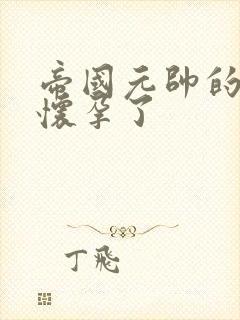 帝國元帥的
懷孕了
丁飛